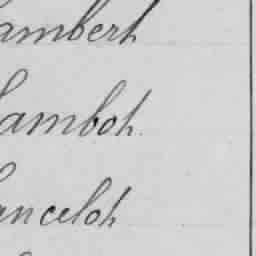 Lambert
Lambot
Lancelot